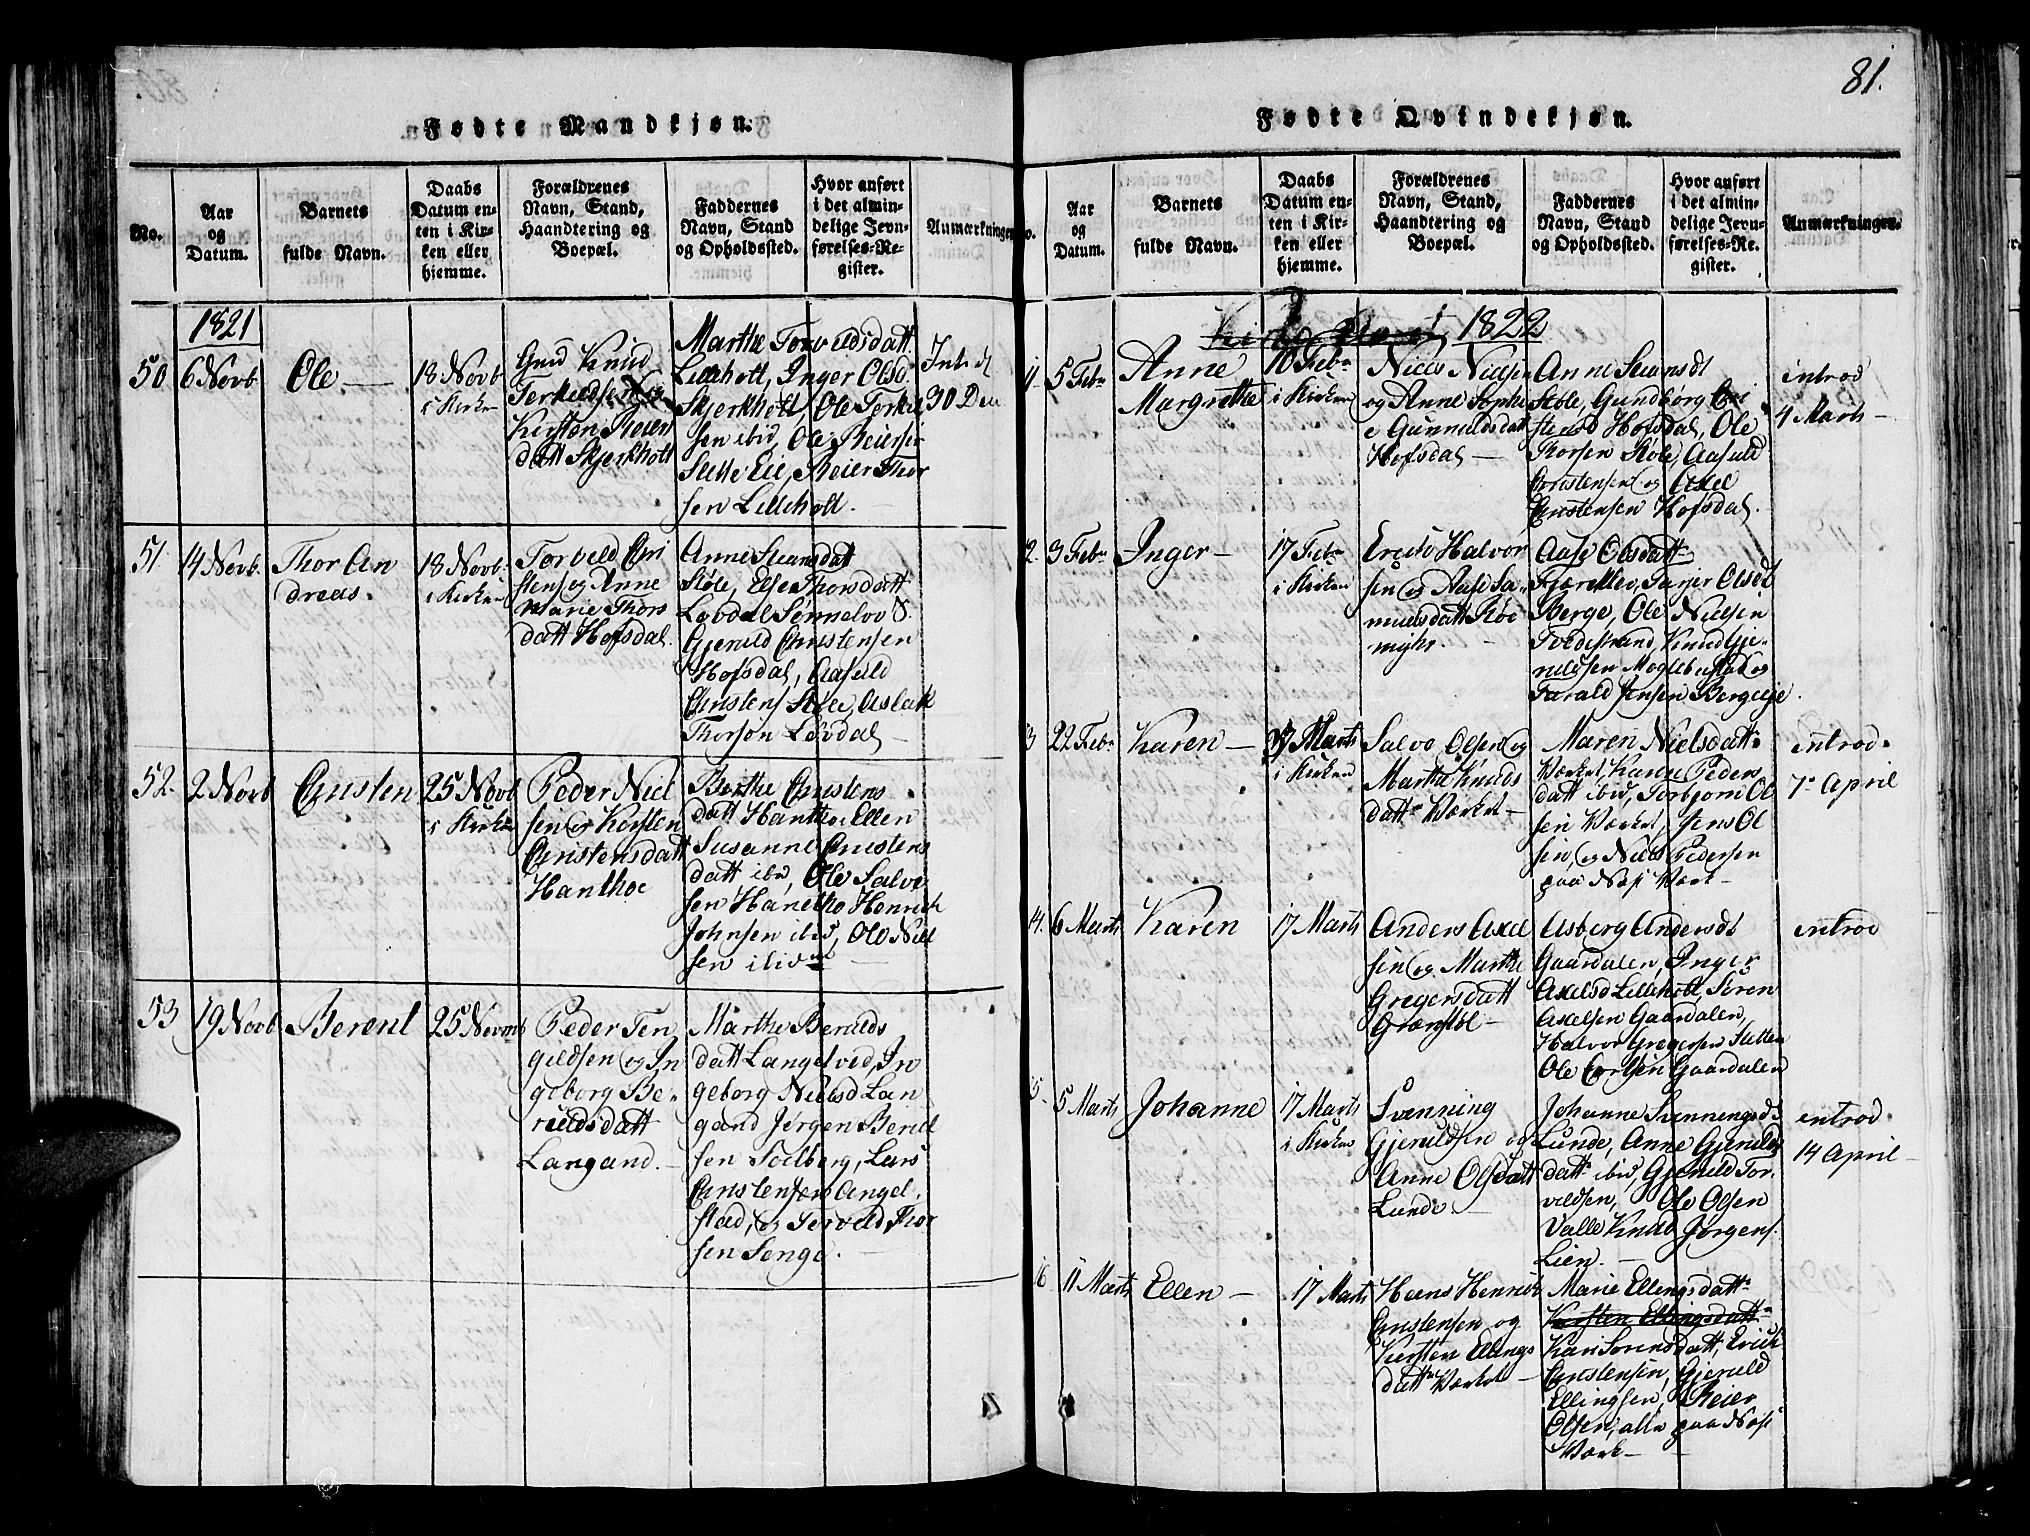 Fødte Mandkjøn.
No.
Aar
og
Datum.
Barnets
fulde Navn.
Daabs
Datum en-
ten i Kir-
ken eller
hjemme.
Forældrenes
Navn, Stand,
Haandtering og
Boepæl.
Faddernes
Navn, Stand
og Opholdssted.
Hvor anført
i det almin-
delige Jevn-
førelses-Re-
gister.
Anmærkninger
1821
50
6 Novb
Ole
18 Novb
i Kirken
Knud
Terkildsen
Kirsten Reiers
datt Skjerkholt
Marthe Torvildsdatt
Lilleholt, Inger Olsd.
Skjerkholt Ole Terkil
sen ibid, Ole Reiersen
Slette Eie, Reier Thor
sen Lilleholt.
Introd
30 Dec
51.
14 Novb.
Thor An
dreas.
18 Novb.
i Kirken
Torveld Chri
stens og Anne
Marie Thors
datt Hofsdal.
Anne Steansdatt
Støle, Else Thorsdatt
Løvdal
Gjeruld Christensen
Hofsdal, Aasuld
Christens Støle, Aslak
Thorson Løvdal
52.
2 Novb
Christen
25 Novb
i Kirken
Peder Niel
sen og Kirsten
Christensdatt
Hantho
Berthe Christens
datt Hantho, Ellen
Susanne Christens
datt ibid, Ole Salve
sen Hantho Henrich
Johnsen ibid, Ole Niel
sen ibid
53
19 Novb
Berent
25 Novmb
Peder Ten
gildsen og In
geborg Be-
reldsdatt
Langand.
Marthe Berulds
datt Langelved, In
geborg Nielsd Lan
gand Jørgen Beruld
sen Solberg, Lars
Christensen Angel
stad, og Torveld Thor
sen Senge.
81.
Fødte Qvindekjøn.
No.
Aar
og
Datum.
Barnets
fulde Navn.
Daabs
Datum en-
ten i Kir-
ken eller
hjemme.
Forældrenes
Navn, Stand,
Haandtering og
Boepæl.
Faddernes
Navn, Stand
og Opholdssted.
Hvor anført
i det almin-
delige Jevn-
førelses-Re-
gister.
Anmærkninger.
1822
11.
5 Febr
Anne
Margrethe
10 Febr
i Kirken
Niels Nielsen
og Anne Sophi
e Gunnuldsdatt
Hofsdal
Anne Steansdt
Støle, Gundborg Cri
stensd Hofsdal, Ole
Thorsen Støle, Aasuld
Christensen og Axel
Christensen Hofsdal.
introd
4 Marts
2.
3 Febr
Inger
17 Febr
i Kirken
Erich Halvor
sen og Aase Sa-
muelsdatt Røe
myhr.
Aase Olsdatt
Fjærekilev, Tarjer Olsdt
Berge, Ole Nielsen
Tvedestrand, Knud Gje-
ruldsen Møglebustad og
Tarald Jensen Bergeeje.
3
22 Febr
Karen
17 Marts
i Kirken
Salve Olsen og
Marthe Knuds
datt Værket
Maren Nielsdatt
Værket, Karen Peders
datt ibid, Torbjørn Ol
sen Værket, Jens Ol
sen, og Niels Pedersen
paa Næs Værk
introd.
7 April
14.
6 Marts
Karen
17 Marts
Anders Axel
sen og Marthe
Gregersdatt
Grønstøl
Asberg Andersdt
Gaardalen, Inger
Axelsd Lilleholt, Søren
Axelsen Gaardalen,
Halvor Gregersen Sletten
Gaardalen
introd
5.
5 Marts
Johanne
17 Marts
i Kirken
Svenning
Gjeruldsen og
Anne Olsdatt
Lunde
Johanne Svenningsd
Lunde, Anne Gjerulds
datt ibid, Gjeruld Tor
veldsen, Ole Olsen
Valle Knud Jørgens.
Lien.
introd.
14 April
16
11 Marts
Ellen
17 Marts
Hans Henrich
Christensen og
Kirsten Ellings
datt Værket
Marie Ellingsdatt
Kirsten Ellingsdatt
Kari Sørensdatt, Erich
Christensen, Gjeruld
Ellingsen, Reier
Olsen, alle paa Næs
Værk